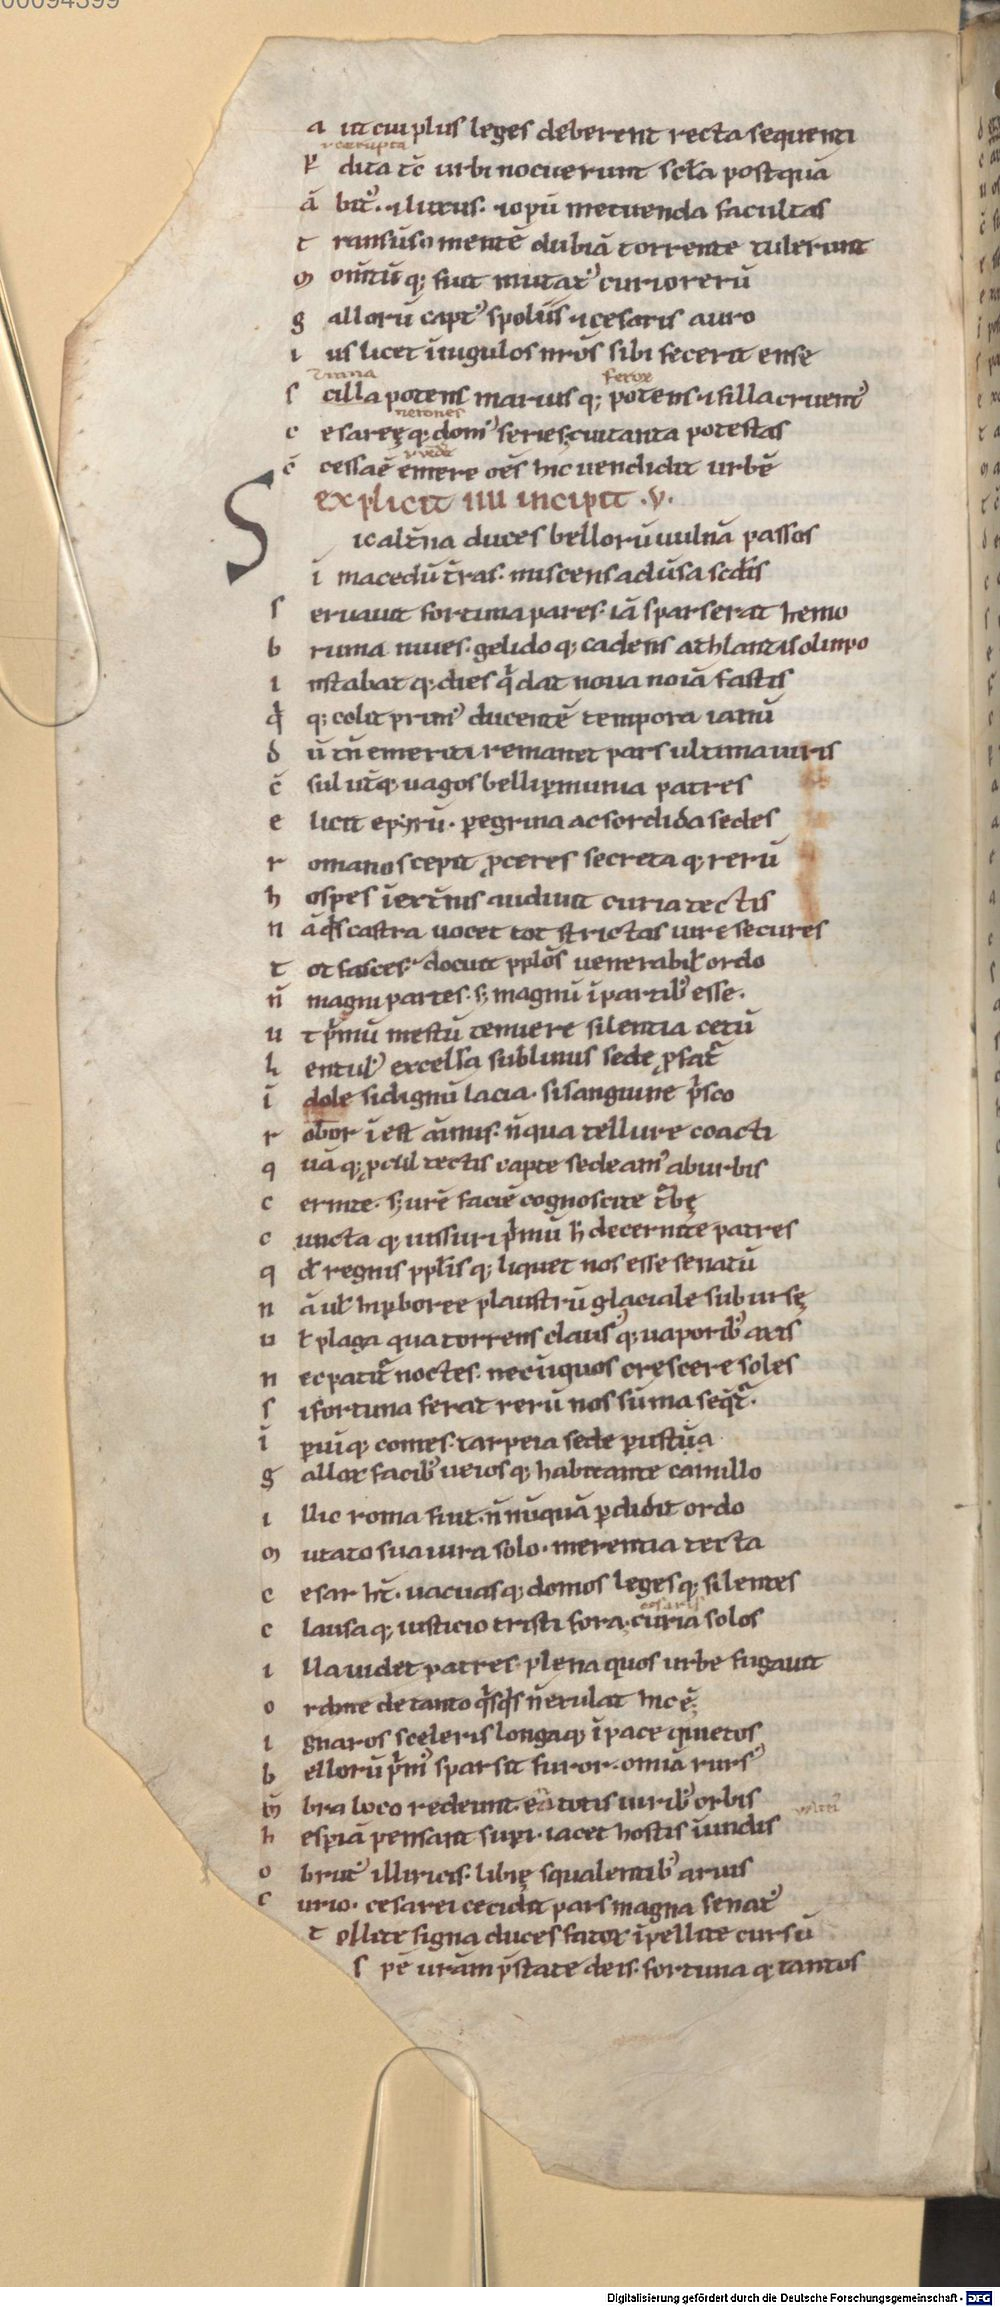 00094399
a ut cui plus leges deberent recta sequenti
r corrupta
P dita tc̄ urbi nocuerunt scl̄a postquā
ā bit᷒. ⁊ luxus. ⁊ opū metuenda facultas
t ransūso mentē dubiā torrente tulerunt
m om̄tūq; fuit mutat᷒ curio rerū
g allorū capt᷒ spoliis ⁊ cesaris auro
i us licet ī iugulos nr̄os sibi fecerit ense
ferox
s cilla potens mariusq; potens ⁊ silla cruent᷒
nerones
c esareęq; dom᷒ series; cui tanta potestas
c̄ cessa ē emere oēs hic vendidit urbē
explicit IIII incipit .V.
S ic alt̄na duces bellorū uulnā passos
ī macedū t̄ras. miscens adūsa scd̄is
s eruauit fortuna pares. iā sparserat hemo
b ruma niues. gelidoq; cadens athlantis olimpo
i nstabatq; dies q̄ dat noua noiā fastis
q̄ q; colit prim᷒ ducentē tempora ianū
d ū tn̄ emeriti remanet pars ultima iuris
c̄ sul ut̄q; uagos belli p̱ munia patres
e licit epyrū. p̱egrina ac sordida sedes
r omanos cepit p̱ceres secretaq; rerū
h ospes ī ext̄nis audiuit curia tectis
n ā q̄s castra uocet tot strictas iure secures
t ot fasces. docuit pplōs uenerabil᷒ ordo
n̄ magni partes. s; magnū ī partib᷒ esse.
u t p̄mū mestū tenuere silentia cetū
l entul᷒ excelsa sublimis sede p̱fat᷒
ī dole si dignū lacia. si sanguine p̄sco
r obor ī est āimus. n̄ qua tellure coacti
q uāq; p̱cul tectis capte sedeam᷒ ab urbis
c ernite. s; ur̄e faciē cognoscite t᷒bę
c unctaq; iussuri p̄mū h̄ decernite patres
q d̄ regnis ppl̄isq; liquet nos esse senatū
n ā ul᷒ hip̱boree plaustrū glaciale sub ursę
u l̄ plaga qua torrens claus᷒q; uaporib᷒ axis
n ec patit᷒ noctes. nec iniquos crescere soles
s i fortuna ferat rerū nos sūma seq̄t᷒.
ī p̱iūq; comes. tarpeia sede p̱usta
g allox facib᷒ ueiosq; habitante camillo
i llic roma fuit. n̄ nūquā p̱didit ordo
m utato sua iura solo. merentia tecta
c esar ht̄. uacuasq; domos legesq; silentes
cesaris
c lausaq; iusticio tristi fora. curia solos
i lla uidet patres plena quos urbe fugauit
o rdine de tanto q̄sq̄s n̄ exulat hic ē.
i gnaros sceleris longaq; ī pace quietos
b ellorū p̄m᷒ sparsit furor. omiā rurs᷒
m̄ bra loco redeunt. en totis uirib᷒ orbis
h esp̱iā pensant sup̱i. iacet hostis ī undis
o brut᷒ illiricis. libię squalentib᷒ aruis
c urio. cesarei cecidit pars magna senat᷒
t ollite signa duces fatox īpellite cursū
s pē ur̄am p̄state deis. fortunaq; tantos
Digitalisierung gefördert durch die Deutsche Forschungsgemeinschaft - DFG